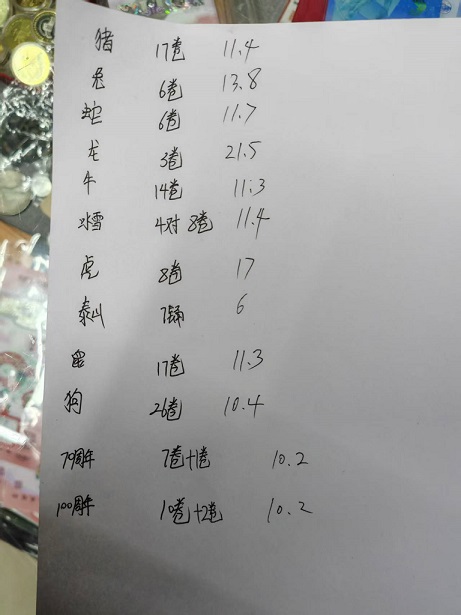 猪 17卷 11.4
兔 6卷 13.8
蛇 6卷 11.7
龙 3卷 21.5
牛 14卷 11.3
冰雪 4对 8卷 11.4
虎 8卷 17
泰山 7桶 6
鼠 17卷 11.3
狗 26卷 10.4
70周年 7卷+1卷 10.2
100周年 10卷+2卷 10.2